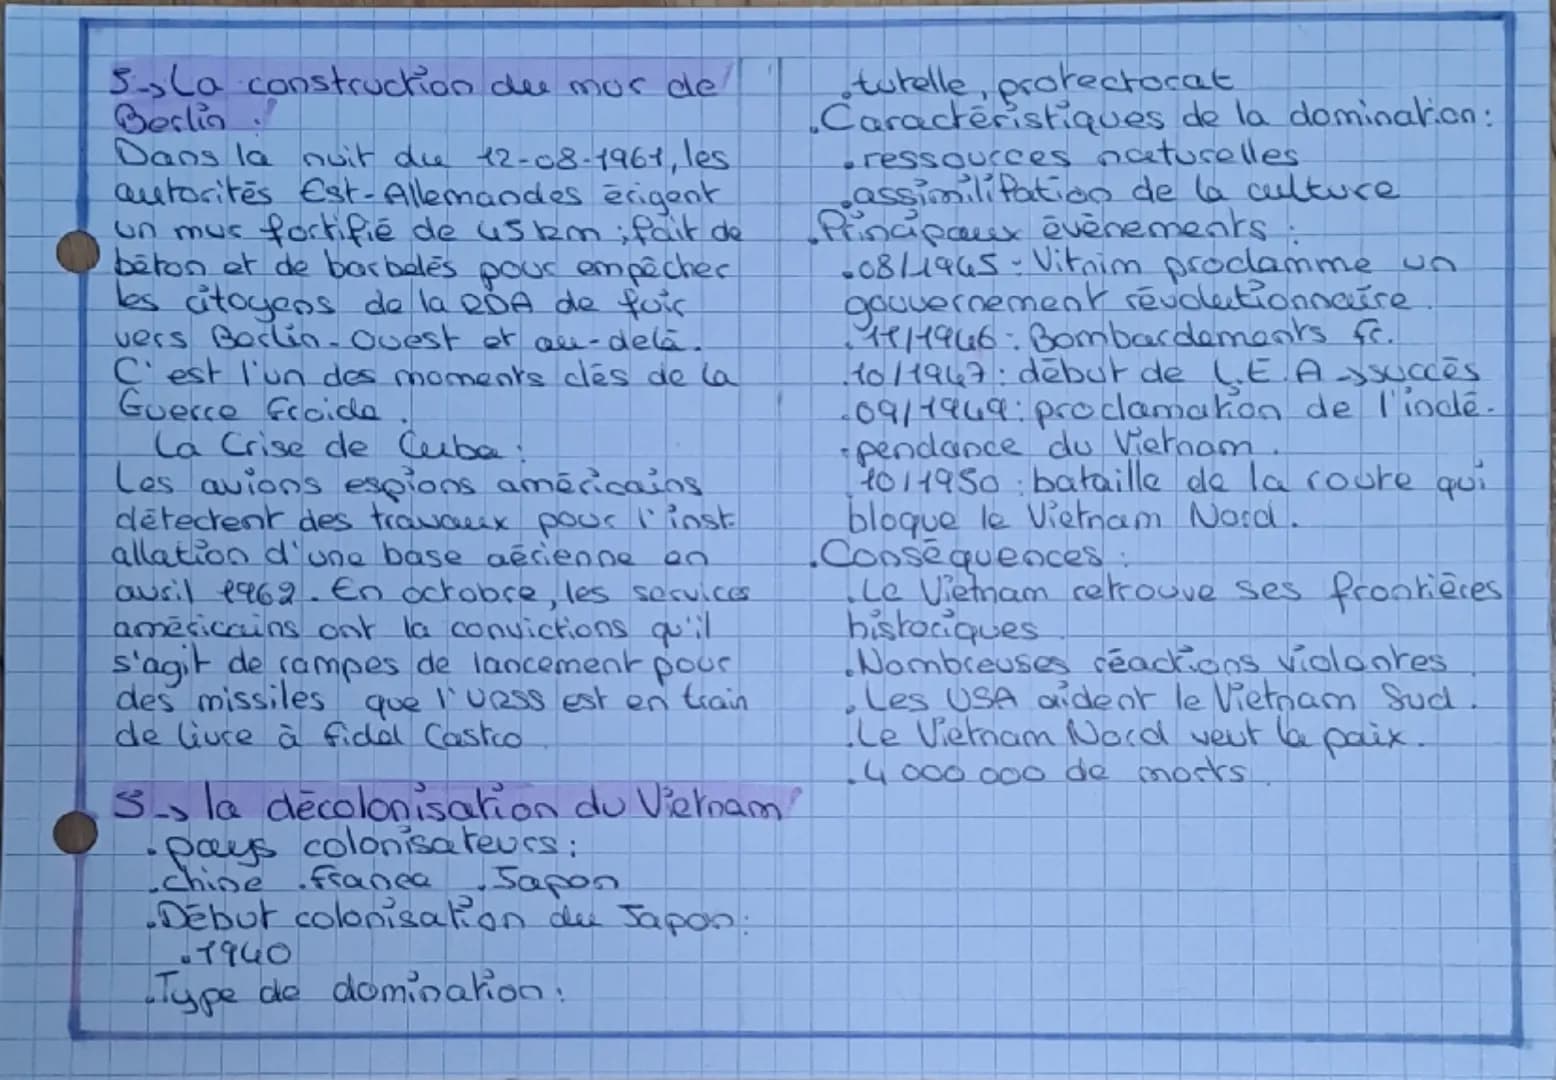 5→La construction du mur de
Berlin :
Dans la nuit du 12-08-1961, les
autorités Est-Allemandes érigent
un mur fortifié de 45 km ; fait de
béton et de barbelés pour empêcher
les citoyens de la RDA de fuir
vers Berlin-Ouest et au-delà.
C'est l'un des moments clés de la
Guerre froide.
La Crise de Cuba :
Les avions espions américains
détectent des travaux pour l'inst-
allation d'une base aérienne en
avril 1962. En octobre, les services
américains ont la convictions qu'il
s'agit de rampes de lancement pour
des missiles que l'URSS est en train
de livre à fidel Castro
5→la décolonisation du Vietnam
.pays colonisateurs :
.chine .france .Japon
.Début colonisation du Japon :
.1940
.Type de domination :
.tutelle, protectorat
.Caractéristiques de la domination :
.ressources naturelles
.assimilifation de la culture
.Principaux évènements :
.08/1945 : Vitnim proclamme un
gouvernement révolutionnaire.
.11/1946 : Bombardements fr.
.10/1947 : début de L.E.A→succès
.09/1949 : proclamation de l'indé-
.pendance du Vietnam.
10/1950 : bataille de la route qui
bloque le Vietnam Nord.
.Conséquences :
.Le Vietnam retrouve ses frontières
historiques.
.Nombreuses réactions violentes
.Les USA aident le Vietnam Sud.
.Le Vietnam Nord veut la paix.
.4 000 000 de morts.